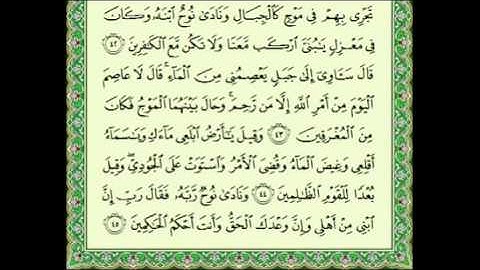 تَجْرِى بِهِمْ فِى مَوْجٍ كَالْجِبَالِ وَنَادَىٰ نُوحٌ ابْنَهُ وَكَانَ
فِى مَعْزِلٍ يَٰبُنَىَّ ارْكَب مَّعَنَا وَلَا تَكُن مَّعَ الْكَٰفِرِينَ ٤٢
قَالَ سَـَٔاوِىٓ إِلَىٰ جَبَلٍ يَعْصِمُنِى مِنَ الْمَآءِ ۚ قَالَ لَا عَاصِمَ
الْيَوْمَ مِنْ أَمْرِ اللَّهِ إِلَّا مَن رَّحِمَ ۚ وَحَالَ بَيْنَهُمَا الْمَوْجُ فَكَانَ
مِنَ الْمُغْرَقِينَ ٤٣ وَقِيلَ يَٰٓأَرْضُ ابْلَعِى مَآءَكِ وَيَٰسَمَآءُ
أَقْلِعِى وَغِيضَ الْمَآءُ وَقُضِىَ الْأَمْرُ وَاسْتَوَتْ عَلَى الْجُودِىِّ ۖ وَقِيلَ
بُعْدًا لِّلْقَوْمِ الظَّٰلِمِينَ ٤٤ وَنَادَىٰ نُوحٌ رَّبَّهُ فَقَالَ رَبِّ إِنَّ
ابْنِى مِنْ أَهْلِى وَإِنَّ وَعْدَكَ الْحَقُّ وَأَنتَ أَحْكَمُ الْحَٰكِمِينَ ٤٥